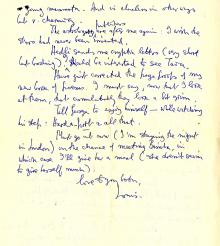 young mammoth. And is clueless in other ways
but v. charming.
The astrologers are after me again: I wish the
stars had never been invented.
Hedli sends me cryptic letters (very short
but loving). Should be interested to see Tara.
Have just corrected the page proofs of my
new book of poems. I must say, now that I look
at them, that cumulatively they look a bit grim.
Tell George to enjoy himself — while watching
his step: Hard-a-port & all that.
Must go out now (I'm staying the night
in London) on the chance of meeting
which case I'll give her a meal (she doesn't seem
to give herself much).
love to you both,
Louis.